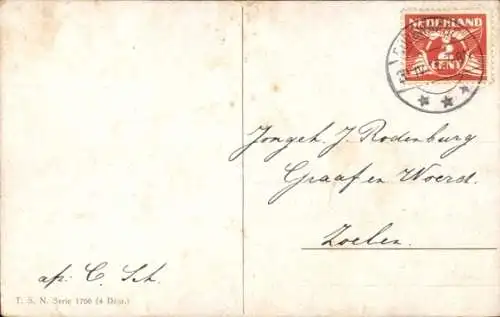 NEDERLAND
2
CENT
Jongeh. J. Rodenburg
Graaf en Woerd.
Zoelen.
afz: C. Sch.
T. S. N. Serie 1766 (4 Dess.)